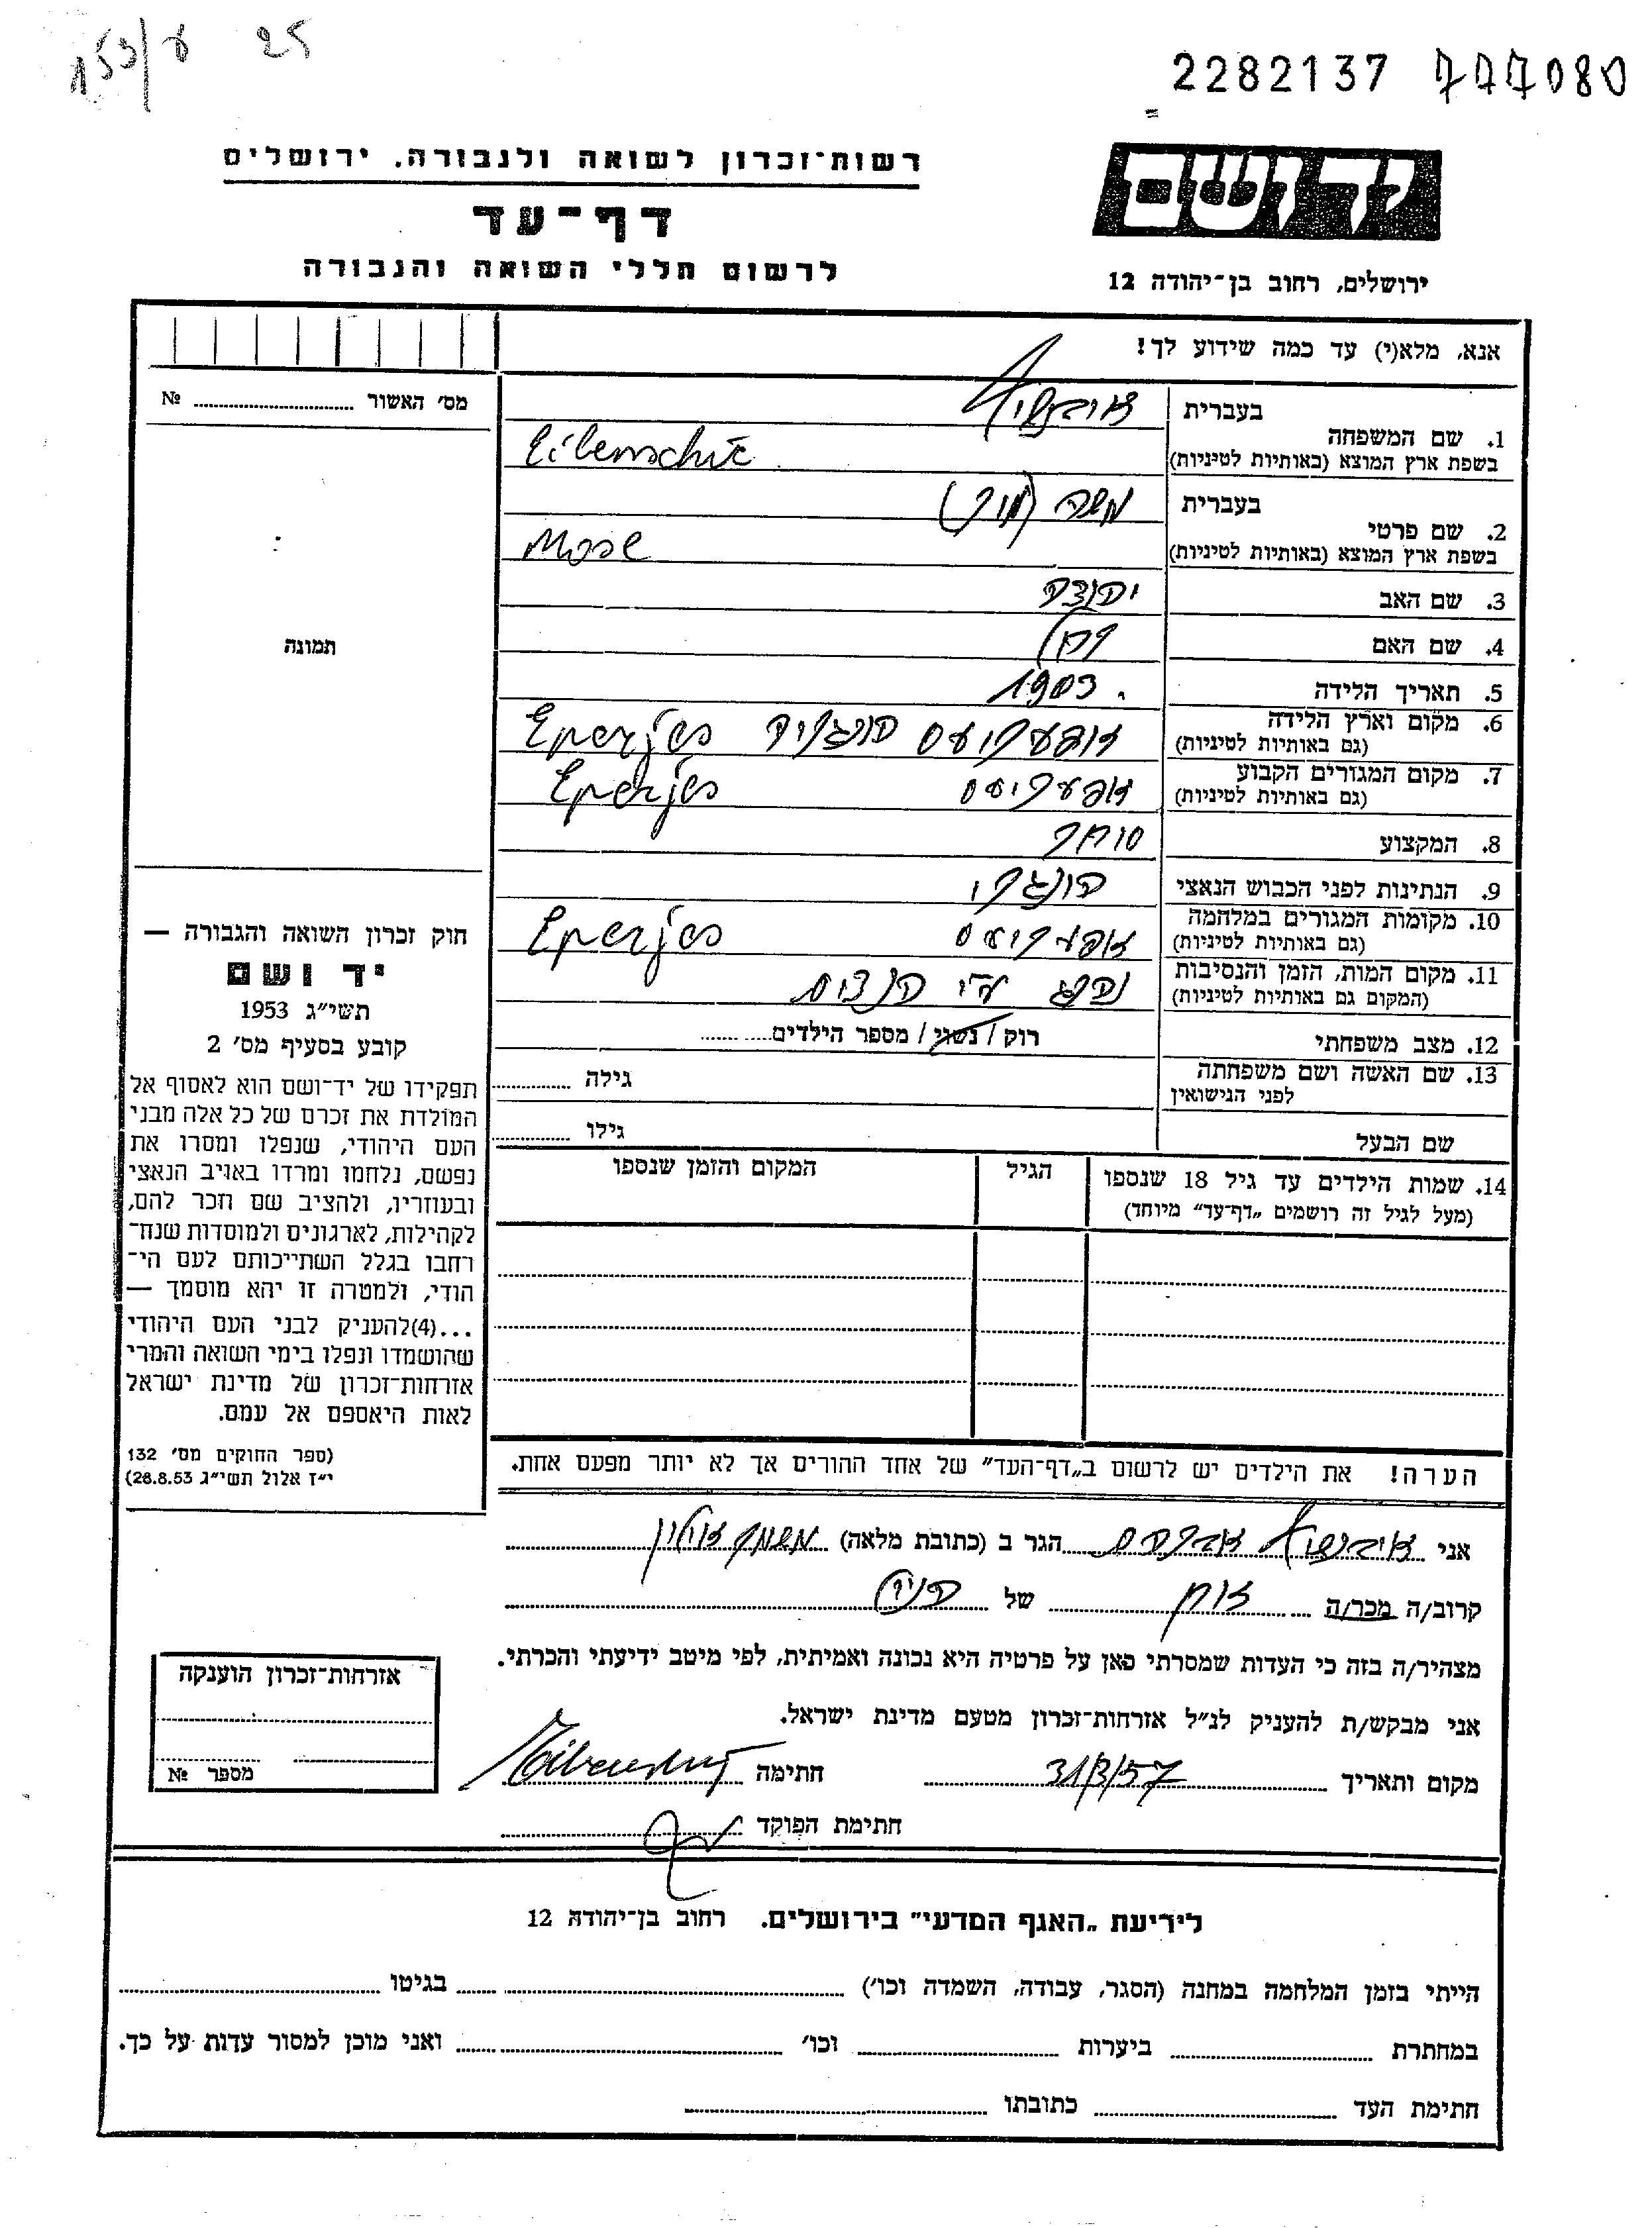 25
2282137 777080
רשות־זכרון לשואה ולגבורה. ירושלים
יד ושם
דף־עד
לרשום חללי השואה והגבורה
ירושלים, רחוב בן־יהודה 12
אנא, מלא(י) עד כמה שידוע לך!
מס׳ האשור № 
1. שם המשפחה
בעברית
בשפת ארץ המוצא (באותיות לטיניות) Eibenschüz
2. שם פרטי
בעברית משה
בשפת ארץ המוצא (באותיות לטיניות) Mose
3. שם האב
4. שם האם
5. תאריך הלידה 1903.
6. מקום וארץ הלידה הונגריה Eperjes
(גם באותיות לטיניות)
7. מקום המגורים הקבוע Eperjes
(גם באותיות לטיניות)
8. המקצוע סוחר
9. הנתינות לפני הכבוש הנאצי הונגרי
10. מקומות המגורים במלחמה Eperjes
(גם באותיות לטיניות)
11. מקום המות, הזמן והנסיבות נהרג ע״י הנצים
(המקום גם באותיות לטיניות)
12. מצב משפחתי רוק / נשוי / מספר הילדים
13. שם האשה ושם משפחתה גילה
לפני הנישואין
שם הבעל גילו
14. שמות הילדים עד גיל 18 שנספו הגיל המקום והזמן שנספו
(מעל לגיל זה רושמים „דף־עד״ מיוחד)
תמונה
חוק זכרון השואה והגבורה —
יד ושם
תשי״ג 1953
קובע בסעיף מס׳ 2
תפקידו של יד־ושם הוא לאסוף אל
המולדת את זכרם של כל אלה מבני
העם היהודי, שנפלו ומסרו את
נפשם, נלחמו ומרדו באויב הנאצי
ובעוזריו, ולהציב שם וזכר להם,
לקהילות, לארגונים ולמוסדות שנח־
רבו בגלל השתייכותם לעם הי־
הודי, ולמטרה זו יהא מוסמך —
...(4)להעניק לבני העם היהודי
שהושמדו ונפלו בימי השואה והמרי
אזרחות־זכרון של מדינת ישראל
לאות היאספם אל עמם.
(ספר החוקים מס׳ 132
י״ז אלול תשי״ג 28.8.53)
הערה! את הילדים יש לרשום ב„דף־העד״ של אחד ההורים אך לא יותר מפעם אחת.
אני הגר ב (כתובת מלאה)
קרוב/ה מכר/ה אח של
מצהיר/ה בזה כי העדות שמסרתי כאן על פרטיה היא נכונה ואמיתית, לפי מיטב ידיעתי והכרתי.
אני מבקש/ת להעניק לנ״ל אזרחות־זכרון מטעם מדינת ישראל.
מקום ותאריך 31/3/57 חתימה
חתימת הפוקד
אזרחות־זכרון הוענקה
מספר №
לידיעת „האגף המדעי״ בירושלים. רחוב בן־יהודה 12
הייתי בזמן המלחמה במחנה (הסגר, עבודה, השמדה וכו׳) בגיטו
במחתרת ביערות וכו׳ ואני מוכן למסור עדות על כך.
חתימת העד כתובתו